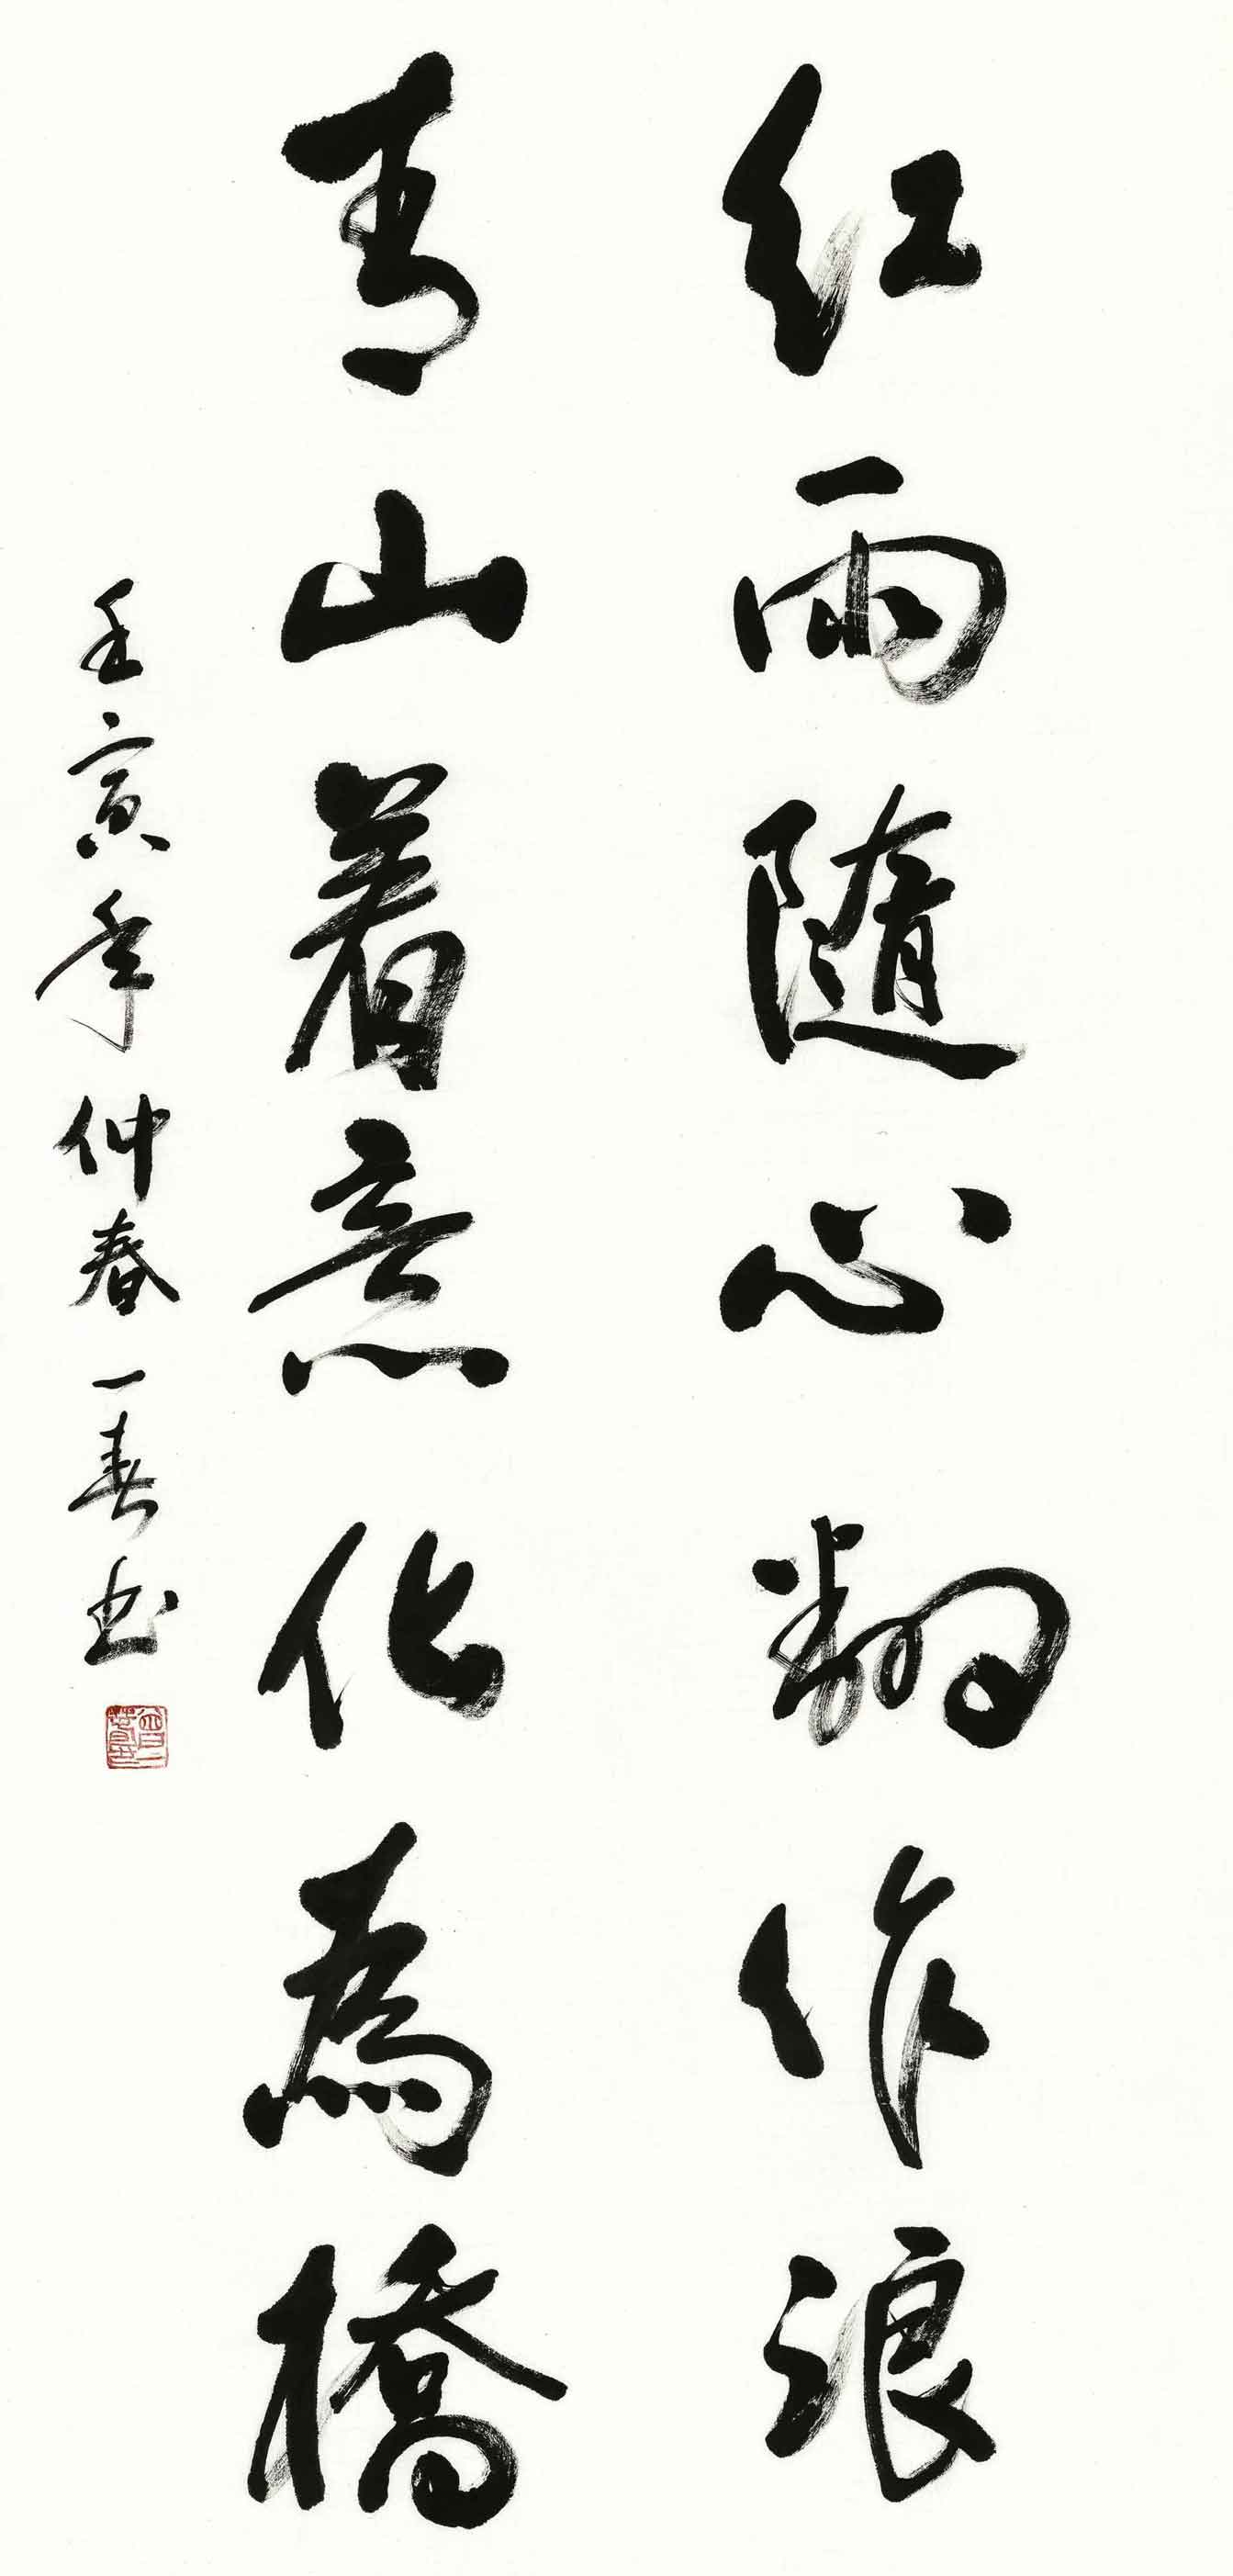 红雨随心翻作浪
青山着意化為橋
壬寅年仲春一书